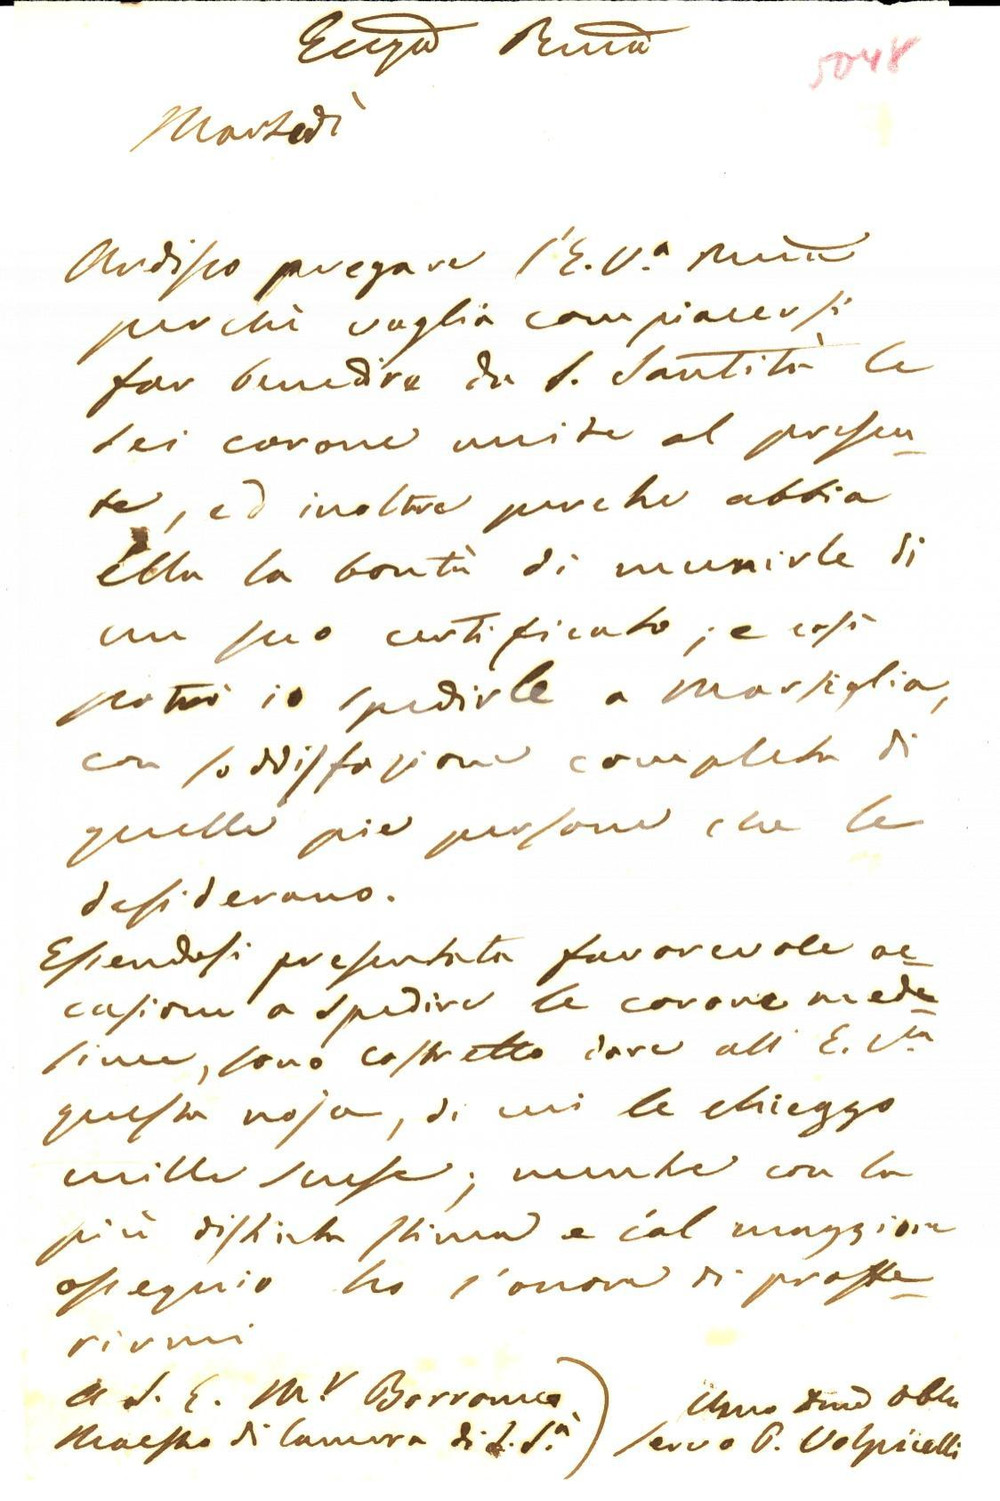 Eccza Rma
5048
Martedì
Ardisco pregare l'E. V.a Rma
perchè voglia compiacersi
far benedire da S. Santità le
sei corone unite al presen_
te, ed inoltre perche abbia
Ella la bontà di munirle di
un suo certificato; e così
potrò io spedirle a Marsiglia,
con soddisfazione completa di
quelle pie persone che le
desiderano.
Essendosi presentata favorevole oc_
casione a spedire le corone mede_
sime, sono costretto dare all' E. Va
questa noja, di cui le chieggo
mille scuse; mentre con la
più distinta stima e col maggiore
ossequio ho l'onore di proffe_
rirmi
A S. E. Mr Borromeo
Maestro di Camera di S. S.à
Umo Dmo obbo
servo P. Volpicelli